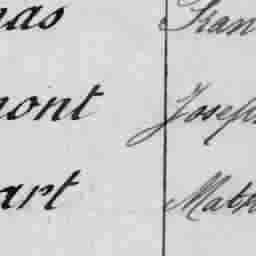 nas Fran
mont Joseph
art Math